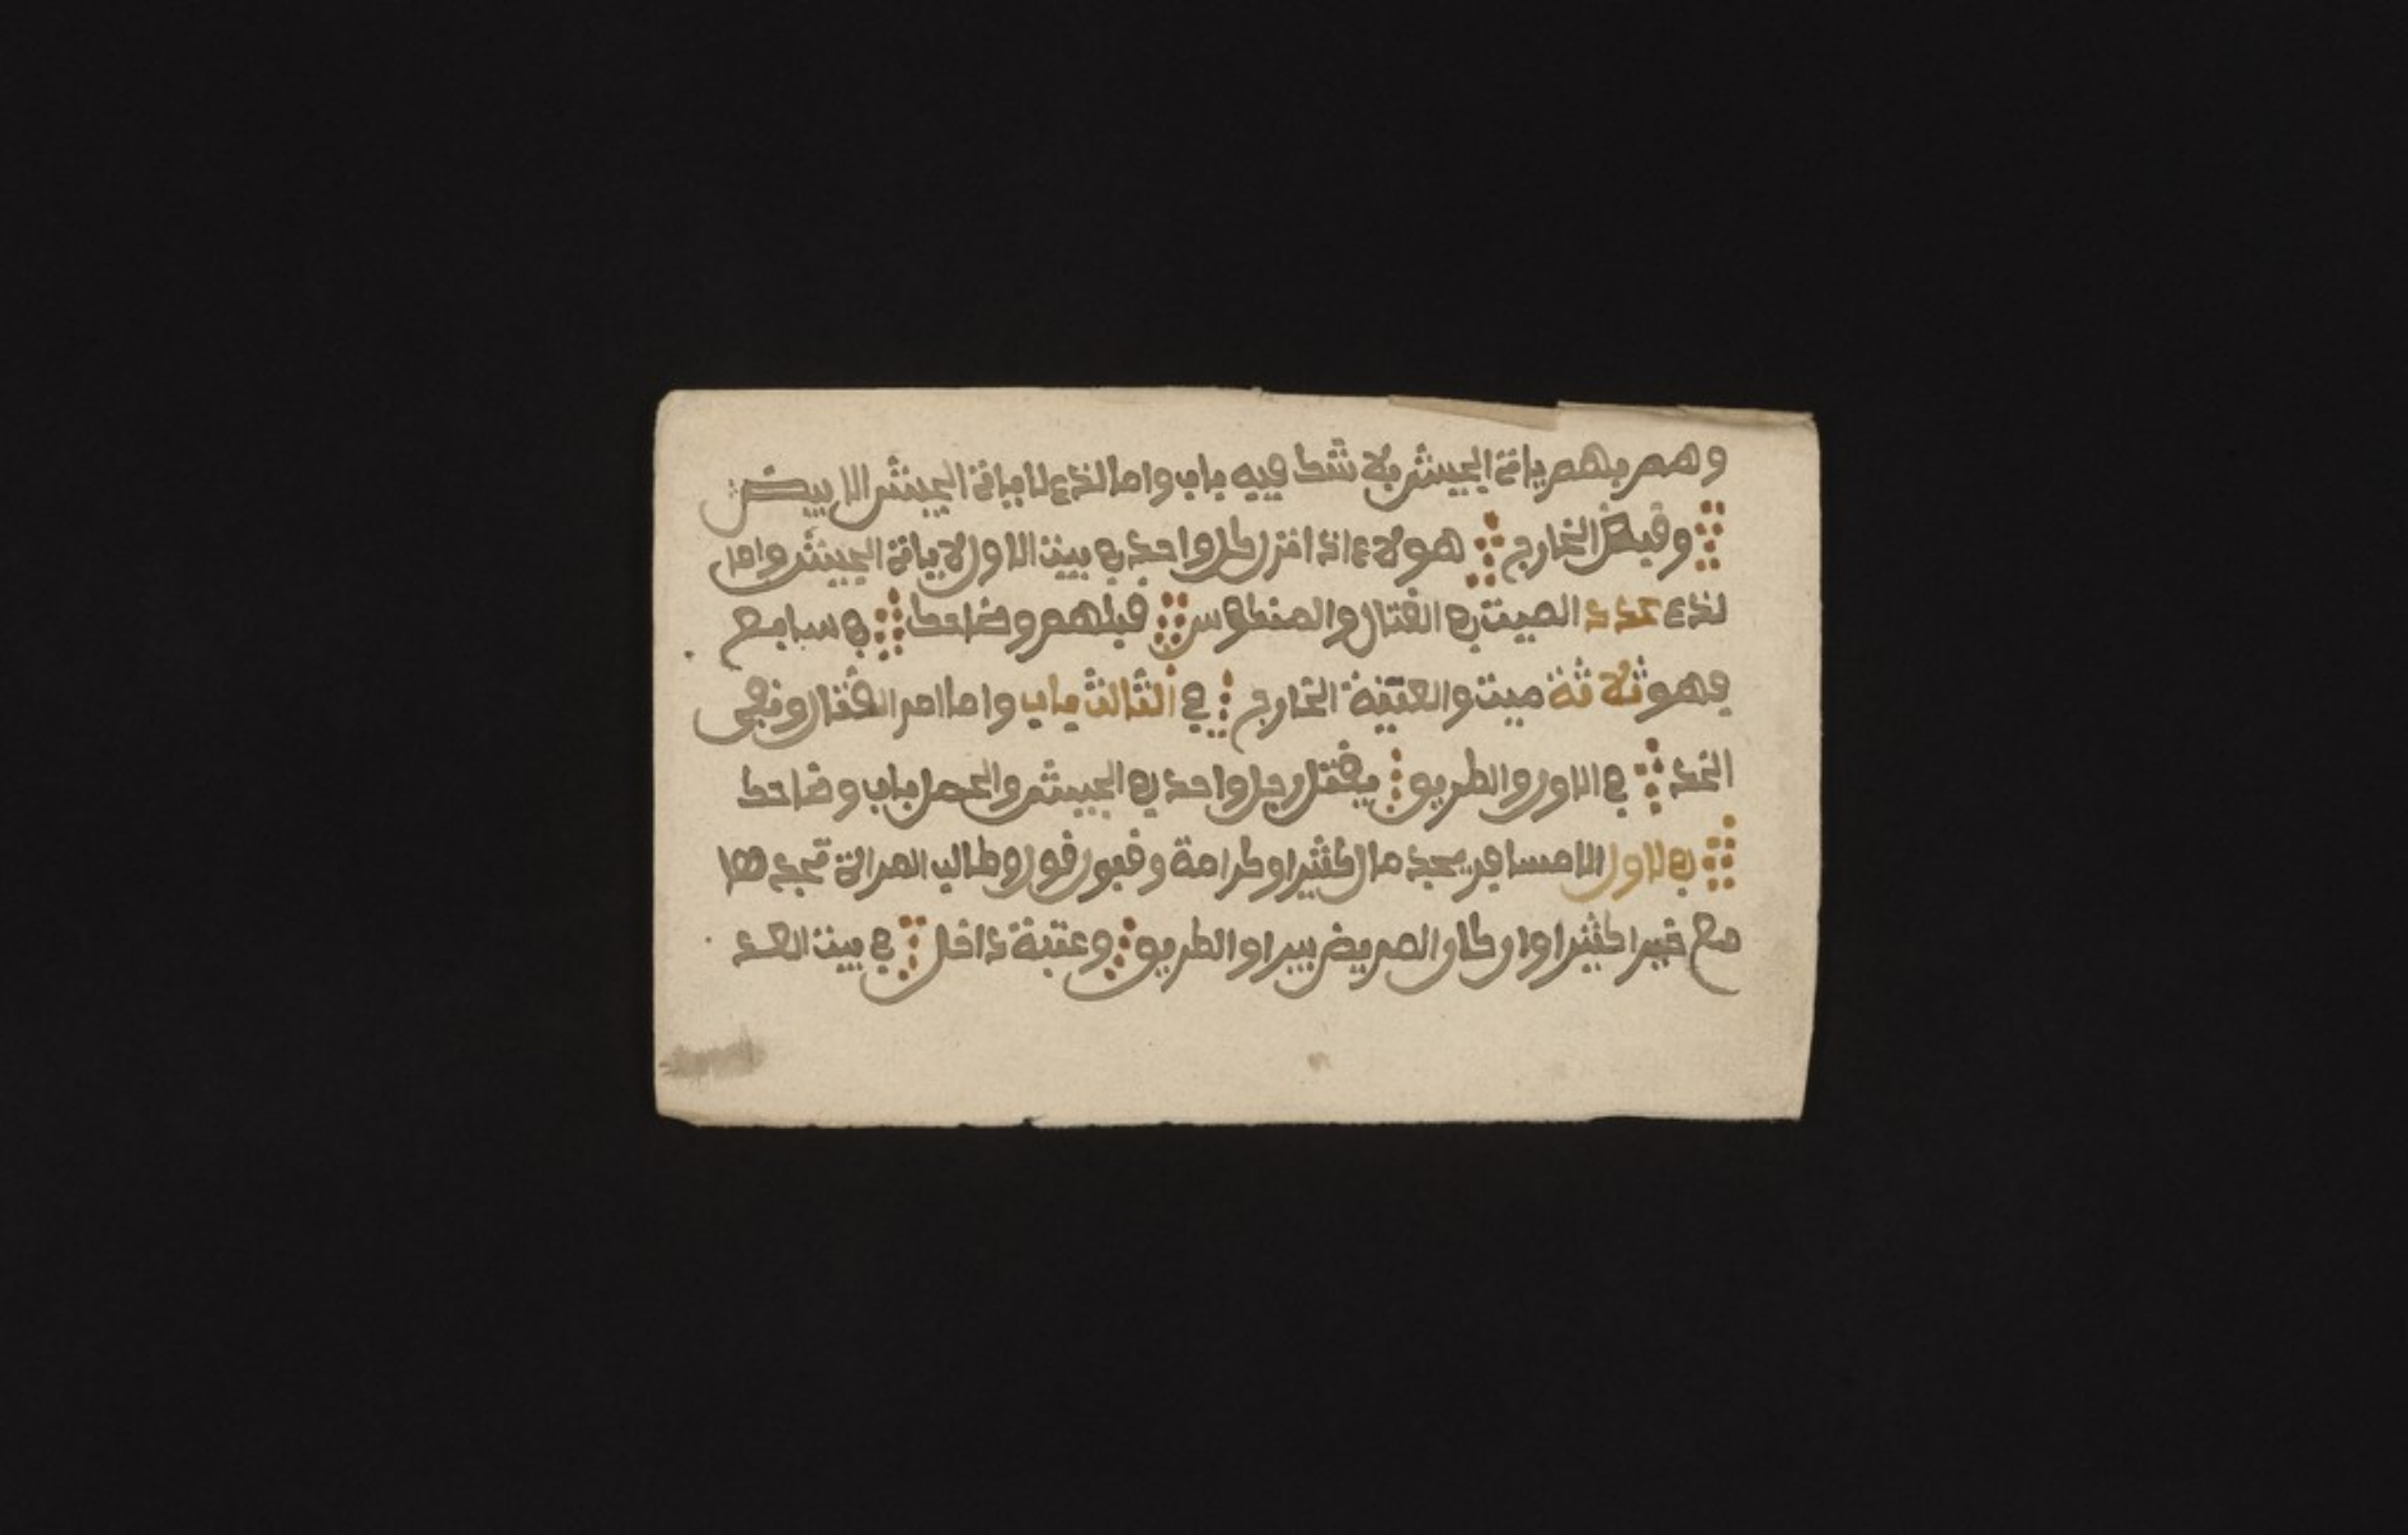 وهم بهم ياتة الجيش بلا شك فيه باب واما الذي لا ياتة الجيش الا بيض
وقبض الخارج هولاء اذا انزل كل واحد في بيت الاول لا ياتة الجيش واما
لذي عدد الميت في القتال والمنكوس قبلهم وضاحك في سابع
فهو ثلاثة ميت والعتبة الخارج في الثالث باب واما امر القتال ونقي
الخد في الاول والطريق يقتل رجل واحد في الجيش والعمل باب وضاحك
في لاول الامسافر يجد مال كثيرا وكرامة وقبور قول وطالب المراة تجدها
مع خيرا كثيرا وان كان المريض بيرا والطريق وعتبة داخل في بيت العد